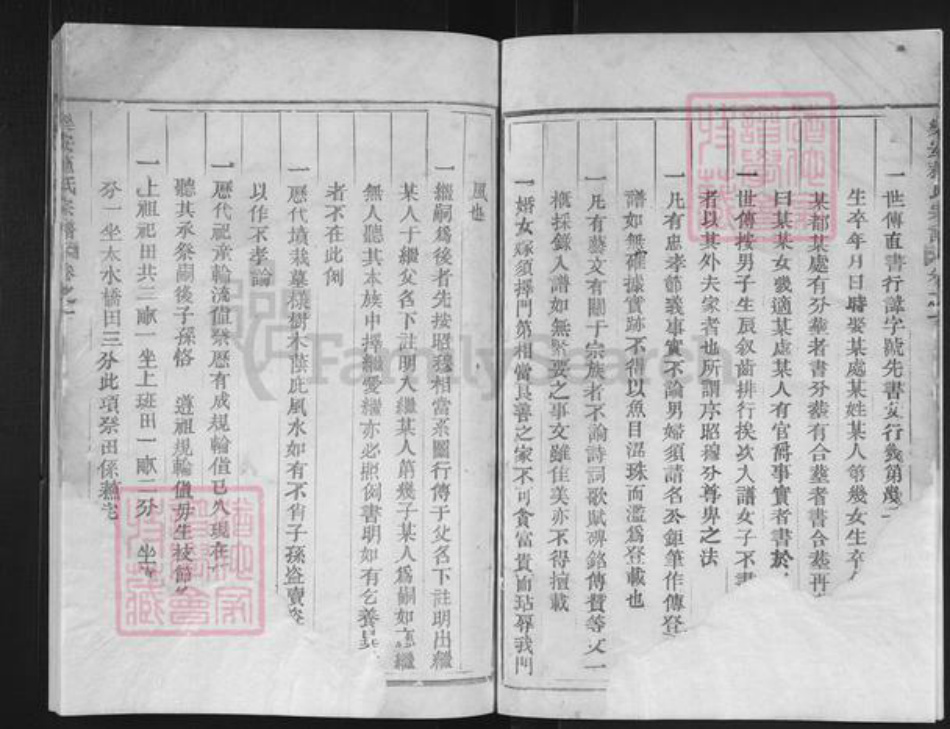 一世傳直書行諱字號先書父行幾第幾
生卒年月日時娶某處某姓某人第幾女生卒
某都某處有分塟者書分塟有合塟者書合塟再
曰某某女幾適某處某人有官爵事實者書於
一世傳按男子生辰叙齒排行挨次入譜女子不書
者以其外夫家者也所謂序昭穆分尊卑之法
一凡有忠孝節義事實不論男婦須請名公鉅筆作傳登
譜如無確據實跡不得以魚目混珠而濫爲登載也
一凡有藝文有關于宗族者不論詩詞歌賦碑銘傳賛等文一
槪採錄入譜如無緊要之事文雖佳美亦不得擅載
一婚女嫁須擇門第相當良善之家不可貪富貴自玷辱我門
風也
一繼嗣爲後者先按昭穆相當系圖行傳于父名下註明出繼
某人于繼父名下註明入繼某人第幾子某人爲嗣如繼
無人聽其本族中擇繼愛繼亦必照例書明如有乞養
者不在此例
一歷代墳栽墓樣樹木蔭庇風水如有不肖子孫盗賣
以作不孝論
一歷代祀產輪流值祭歷有成規輪值已久現在
聽其承祭嗣後子孫恪 遵祖規輪值毋生枝節
一上祖祀田共二畝一坐上班田一畝二分 坐
分一坐木水橋田三分此項祭田係
FamilySearch